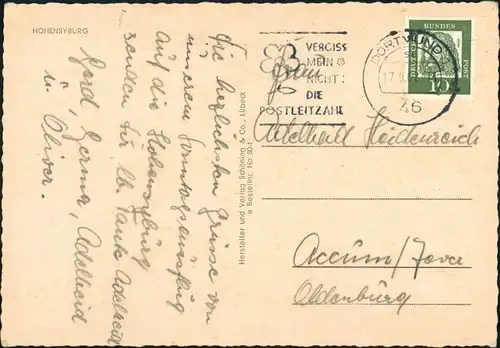 HOHENSYBURG
Die herzlichsten Grüsse von
unserem Sonntagsausflug
auf die Hohensyburg
senden dir lb. Tante Adelheid
Gerd, Germa, Adelheid
u. Oliver.
Hersteller und Verlag Schöning & Co., Lübeck
Bestellnr. Ho
VERGISS
MEIN
NICHT
DIE
POSTLEITZAHL
DORTMUND
46
DEUTSCHE
BUNDES
POST
10
Frau
Adelheid Heidenreich
Accum/Jever
Oldenburg